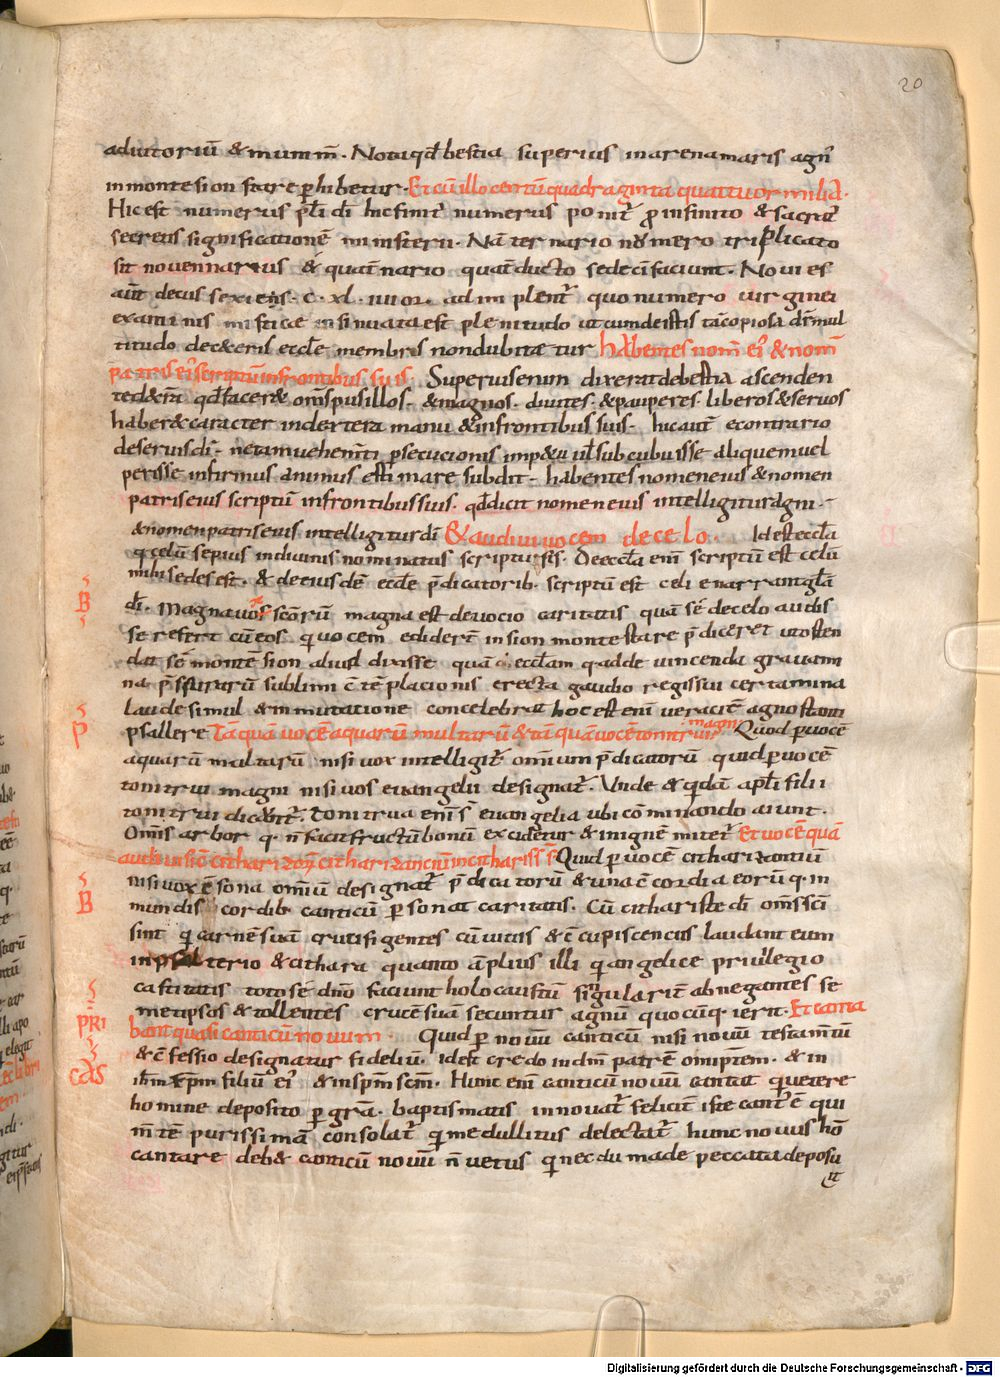 20
adiutoriū & mummē. Nota qđ bestia superius in arena maris agn̄
in monte sion stare phibetur. Et cū illo centū quadraginta quattuor milia.
Hic est numerus pl̄i dī hic finit numerus ponit p infinito & sacrat
secretis significationē ministerii. Nā ternario numero triplicato
sit novennarius & quat̄nario quat̄ ducto sedecī faciunt. Novies
aut̄ decus sexiens. c. xl. iiii or. adimplent̄ quo numero virginei
examinis misticæ insinuata est plenitudo ut cum de istis tā copiosa dr̄ mul
titudo de c&eris eccl̄e membris non dubitætur habentes nom̄ ei' & nom̄
patris ei' scriptū in frontibus suis. Superius enim dixerat de bestia ascenden
te de t̄ra qđ facer& om̄s pusillos. & magnos. divites. & pauperes. liberos & servos
haber& caracter in dextera manu & in frontibus suis. hic aut̄ econtrario
de servis dī. ne tam vehem̄ti psecucionis imp&u ul̄ subcubuisse aliquem vel
perisse infirmus animus estimare subdit. habentes nomen eius & nomen
patris eius scriptū in frontibus suis. qđ dicit nomen eius intelligitur agni.
& nomen patris eius intelligitur dī & audivi vocem de celo. Id est eccl̄a
q celū sepius in divinis nominatus scripturis. De eccl̄a eni scriptū est celū
mihi sedes est. & de eiusdē eccl̄e p̄dicatorib. scriptū est celi enarrant gl̄ā
B dī. Magna vox sc̄orū magna est devocio caritatis quā sē de celo audis
se refert cū eos. q vocem edider̄t in sion monte stare p̄diceret ut osten
dat sē montē sion aliud dixisse quā eccl̄am q ad de vincenda gravami
na p̄ssurarū sublimi c̄tēplacionis erecta gaudio regis sui certamina
laude simul & inmutatione concelebrat hoc est eni veraciē agnos tam
P psallere Tā quā vocē aquarū multarū & tā quā vocē tonitrui magni Quod p vocē
aquarū multarū nisi vox intelligit̄ omnium p̄dicatorū quid p vocē
tonitrui magni nisi vos evangelii designat̄. Unde & qdā apl̄i filii
tonitrui dicunt̄. Tonitrua eni s̄ evangelia ubi cōminando aiunt.
Omīs arbor q. n̄ facit fructū bonū excidetur & in ignē mitet̄ Et vocē quā
audivi sicut citharizoz citharizanciū in citharis s̄ Quid p vocē citharizantiū
B nisi vox ē sona omiū designat̄ p̄dicatorū & una c̄cordia eorū q. in
mundis cordib. canticū psonat caritatis. Cū cithariste dī om̄s sc̄i
sint q carnē suā crucifigentes cū vitiis & c̄cupiscenciis laudant eum
in psalterio & cithara quanto āplius illi q angelice privilegio
castitatis toto sē dn̄o faciunt holocaustū singularit̄ abnegantes se
metipsos & tollentes crucē suā secuntur agnū quocūq. ierit. Et canta
PRI bant quasi canticū novum. Quid p novū canticū nisi novū testam̄tū
& c̄fessio designatur fideliū. id est credo in dm̄ patrē omiptem. & in
CAS ih̄m xp̄m filiū ei' & in sp̄m sc̄m. Hunc eni canticū novū cantat q vetere
homine deposito p grā. baptismatis innovat̄ feliciū iste cant' ē qui
m̄tē purissimā consolat̄ q medullitus delectat̄ hunc novus hō
cantare deb& canticū novū n̄ vetus q necdum ade peccata deposu
it
Digitalisierung gefördert durch die Deutsche Forschungsgemeinschaft - DFG